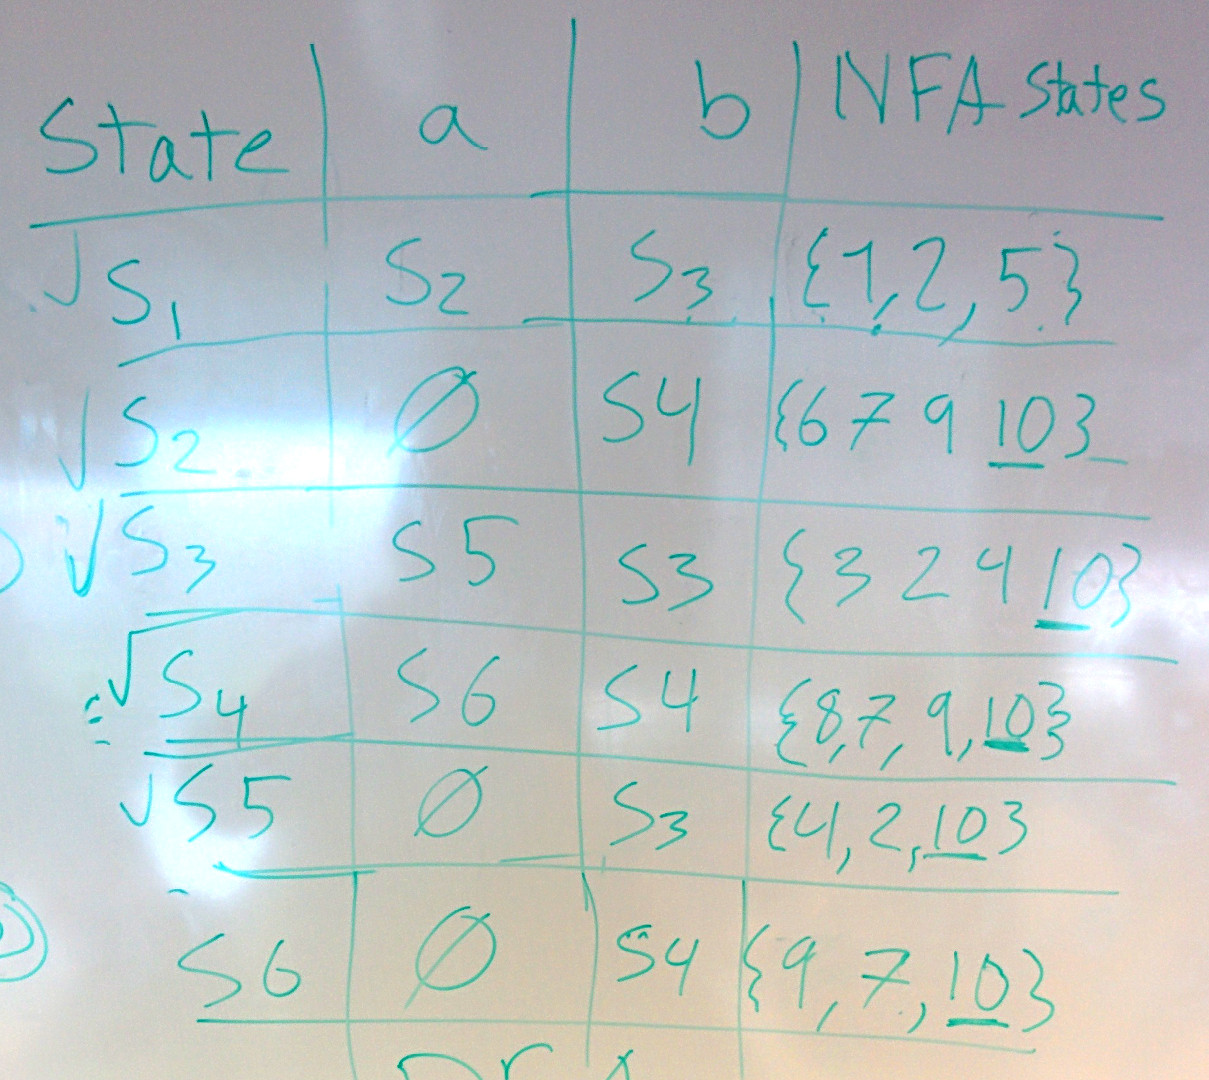 State a b NFA States
√ S1 S2 S3 {1,2,5}
√ S2 Ø S4 {6 7 9 10}
√ S3 S5 S3 {3 2 4 10}
√ S4 S6 S4 {8,7,9,10}
√ S5 Ø S3 {4,2,10}
S6 Ø S4 {9,7,10}